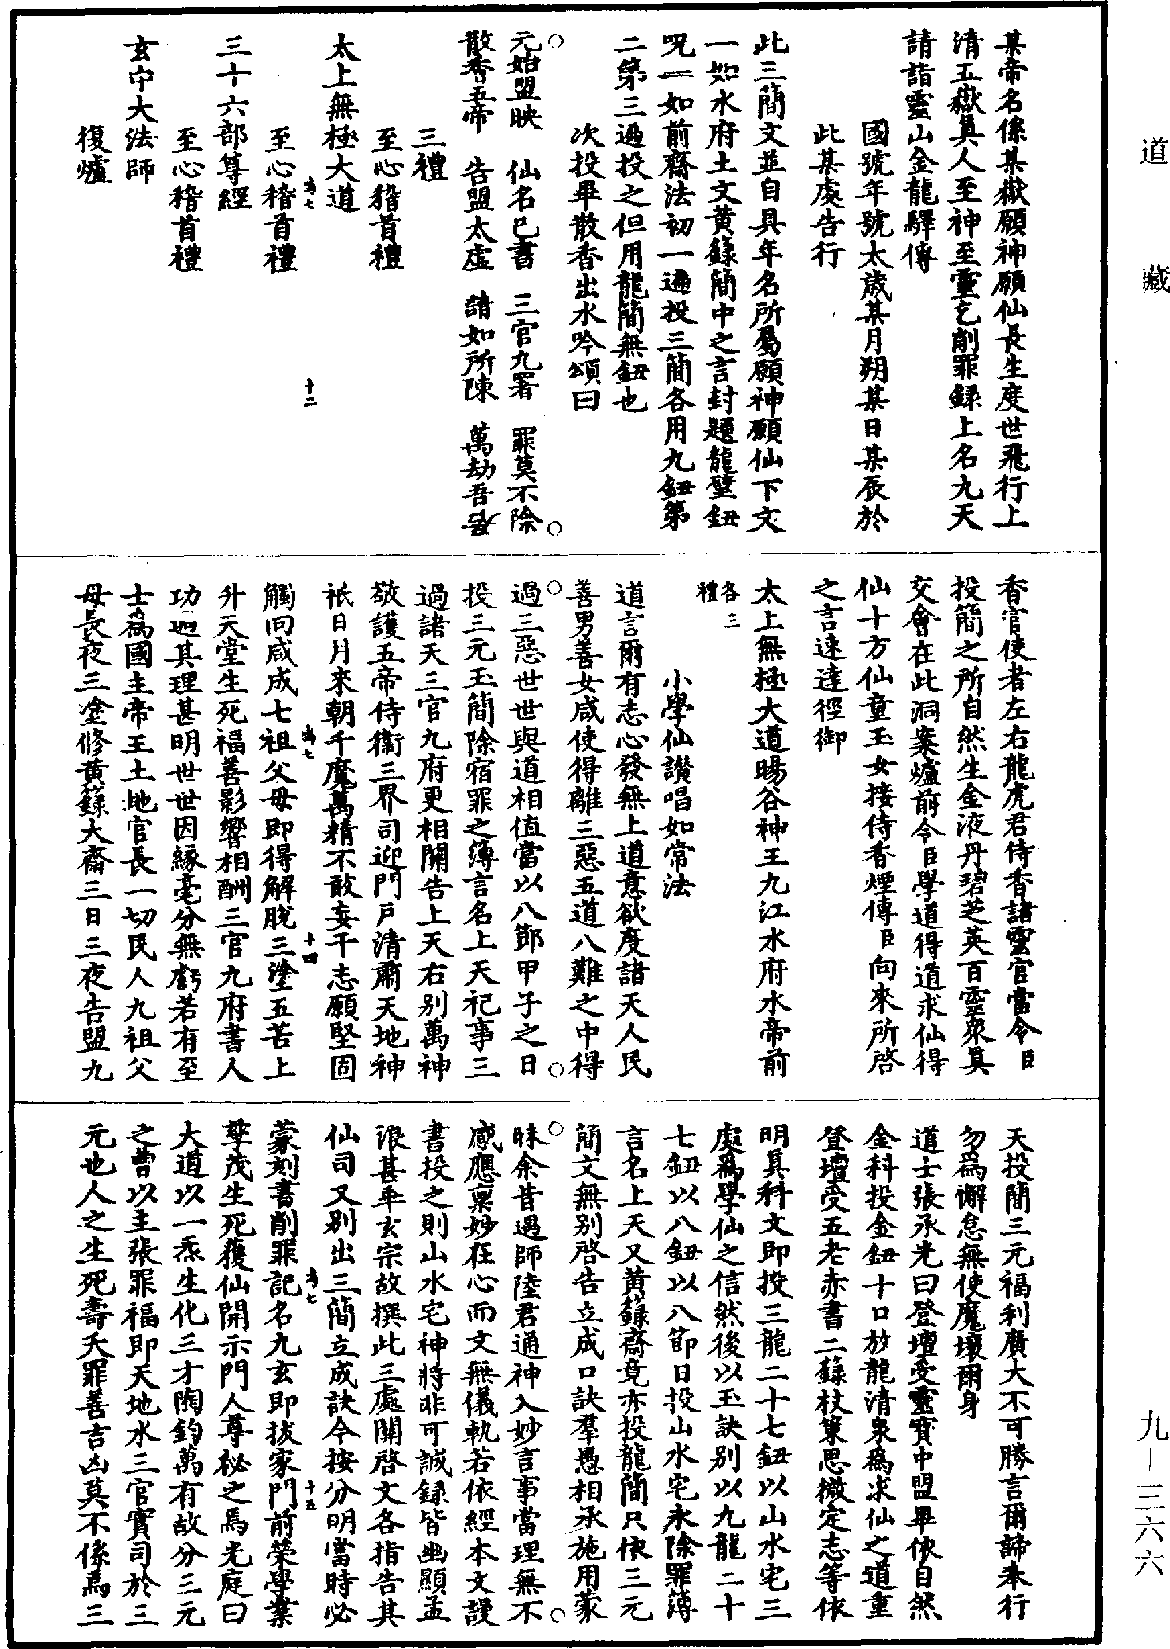 道藏
某帝名係某嶽願神願仙長生度世飛行上
清五嶽真人至神至靈乞削罪録上名九天
請詣靈山金龍驛傳
國號年號太歲某月朔某日某辰於
此某處告行
此三簡文並自具年名所屬願神願仙下文
一如水府土文黄籙簡中之言封題龍璧鈕
呪一如前齋法初一過投三簡各用九鈕第
二第三過投之但用龍簡無鈕也
次投畢散香出水吟頌曰
元始盟映 仙名已書 三官九署 罪莫不除
散香五帝 告盟太虛 請如所陳 萬劫吾
三禮
至心稽首禮
太上無極大道
至心稽首禮
三十六部尊經
至心稽首禮
玄中大法師
復爐
香官使者左右龍虎君侍香諸靈官當令臣
投簡之所自然生金液丹碧芝英百靈衆真
交會在此洞案爐前令臣學道得道求仙得
仙十方仙童玉女接侍香煙傳臣向來所啓
之言速達徑御
太上無極大道暘谷神王九江水府水帝前
各三禮
小學仙讃唱如常法
道言爾有志心發無上道意欲度諸天人民
善男善女咸使得離三惡五道八難之中得
過三惡世世與道相值當以八節甲子之日
投三元玉簡除宿罪之簿言名上天祀事三
過諸天三官九府更相關告上天右别萬神
敬護五帝侍衛三界司迎門戸清肅天地神
祇日月來朝千魔萬精不敢妄干志願堅固
觸向咸成七祖父母即得解脱三塗五苦上
升天堂生死福善影響相酬三官九府書人
功過其理甚明世世因緣毫分無虧若有至
士爲國主帝王土地官長一切民人九祖父
母長夜三塗修黄籙大齋三日三夜告盟九
天投簡三元福利廣大不可勝言爾諦奉行
勿爲懈怠無使魔壞爾身
道士張承先曰登壇受靈寳中盟畢依自然
金科投金鈕十口放龍清泉爲求仙之道重
登壇受五老赤書二籙杖策思微定志等依
明真科文即投三龍二十七鈕以山水宅三
處爲學仙之信然後以玉訣别以九龍二十
七鈕以八鈕以八節日投山水宅永除罪簿
言名上天又黄籙齋竟亦投龍簡只依三元
簡文無别啓告立成口訣羣愚相承施用蒙
昧余昔遇師陸君通神入妙言事當理無不
感應稟妙在心而文無儀軌若依經本文謾
書投之則山水宅神將非可誠録皆幽顯孟
浪甚乖玄宗故撰此三處關啓文各指告其
仙司又别出三簡立成訣令按分明當時必
蒙刻書削罪記名九玄即拔家門前榮學業
孳茂生死獲仙開示門人尊秘之焉光庭曰
大道以一炁生化三才陶鈞萬有故分三元
之曹以主張罪福即天地水三官實司於三
元也人之生死壽夭罪善吉凶莫不係焉三
九－三六六